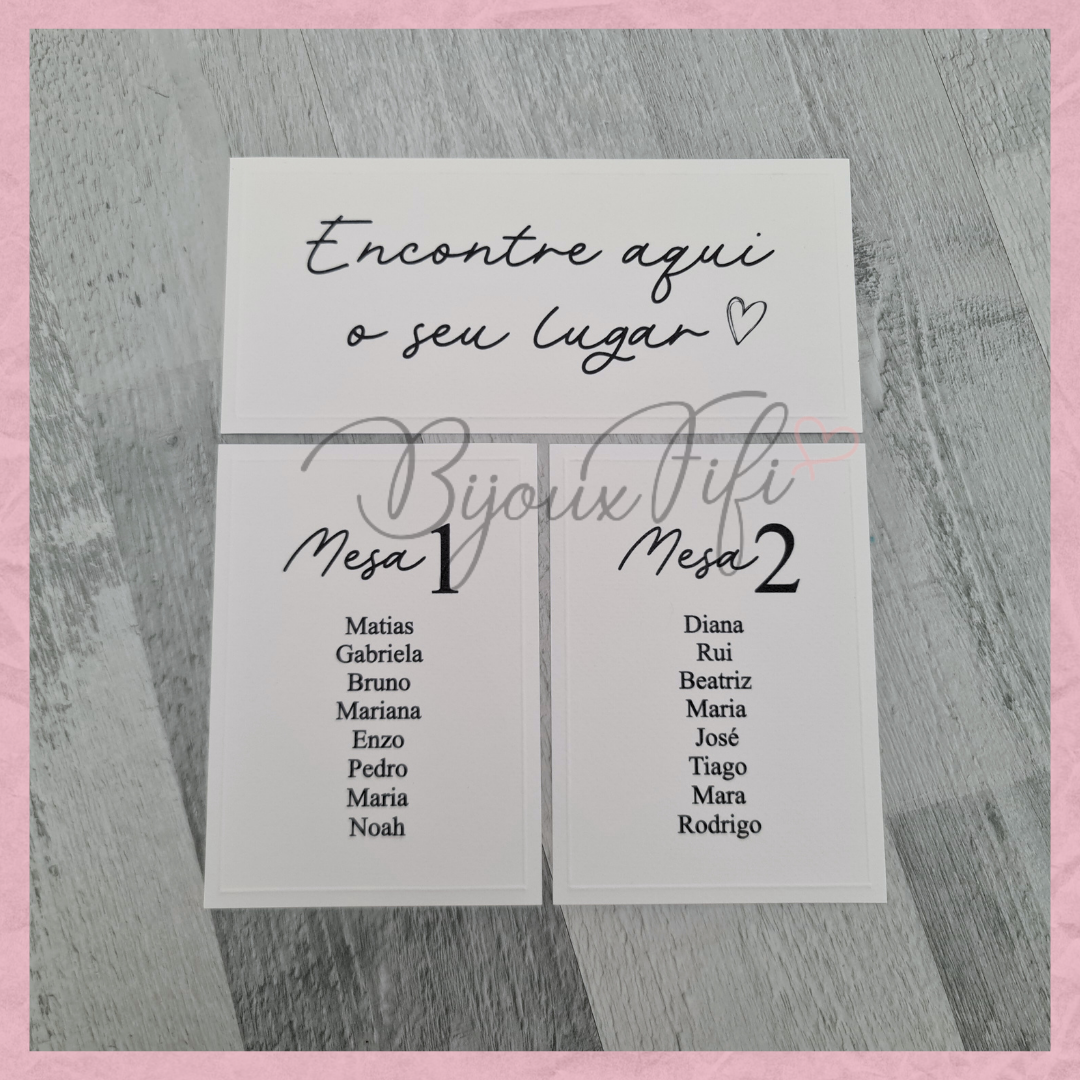 Encontre aqui
o seu lugar
Bijoux Fifi
Mesa 1
Matias
Gabriela
Bruno
Mariana
Enzo
Pedro
Maria
Noah
Mesa 2
Diana
Rui
Beatriz
Maria
José
Tiago
Mara
Rodrigo